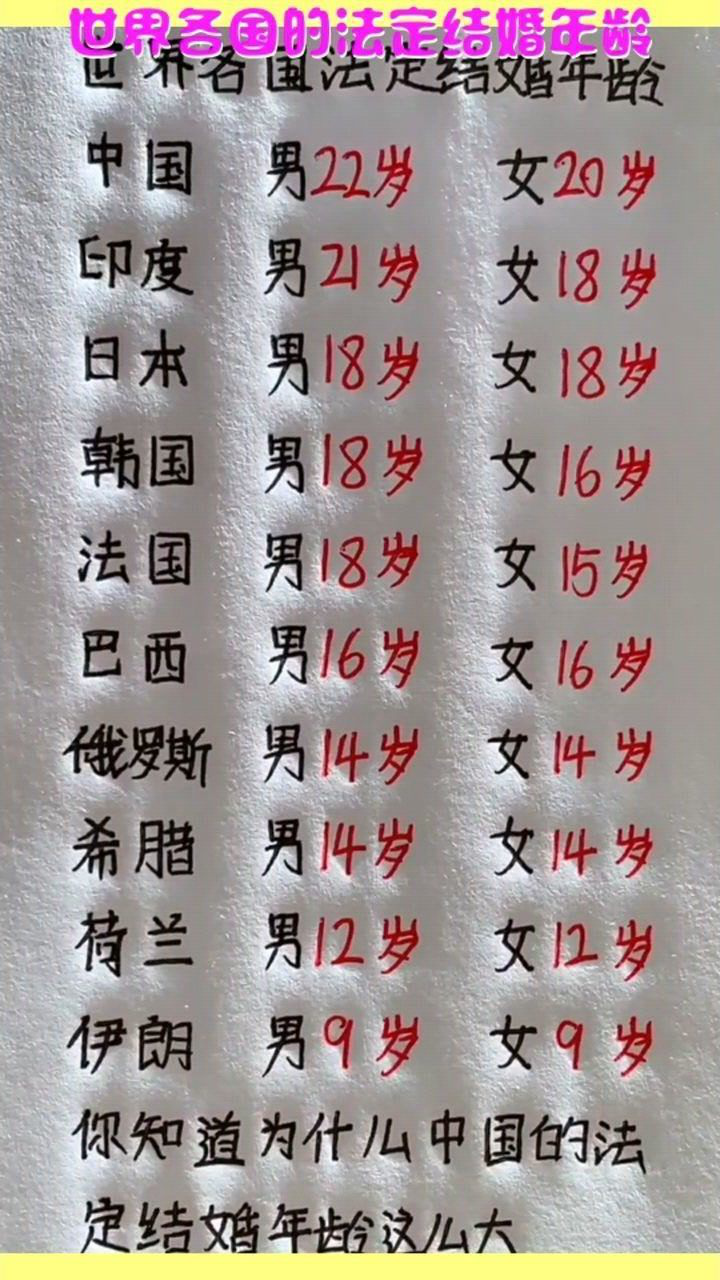 世界各国的法定结婚年龄
世界各国法定结婚年龄
中国 男22岁 女20岁
印度 男21岁 女18岁
日本 男18岁 女18岁
韩国 男18岁 女16岁
法国 男18岁 女15岁
巴西 男16岁 女16岁
俄罗斯 男14岁 女14岁
希腊 男14岁 女14岁
荷兰 男12岁 女12岁
伊朗 男9岁 女9岁
你知道为什么中国的法
定结婚年龄这么大